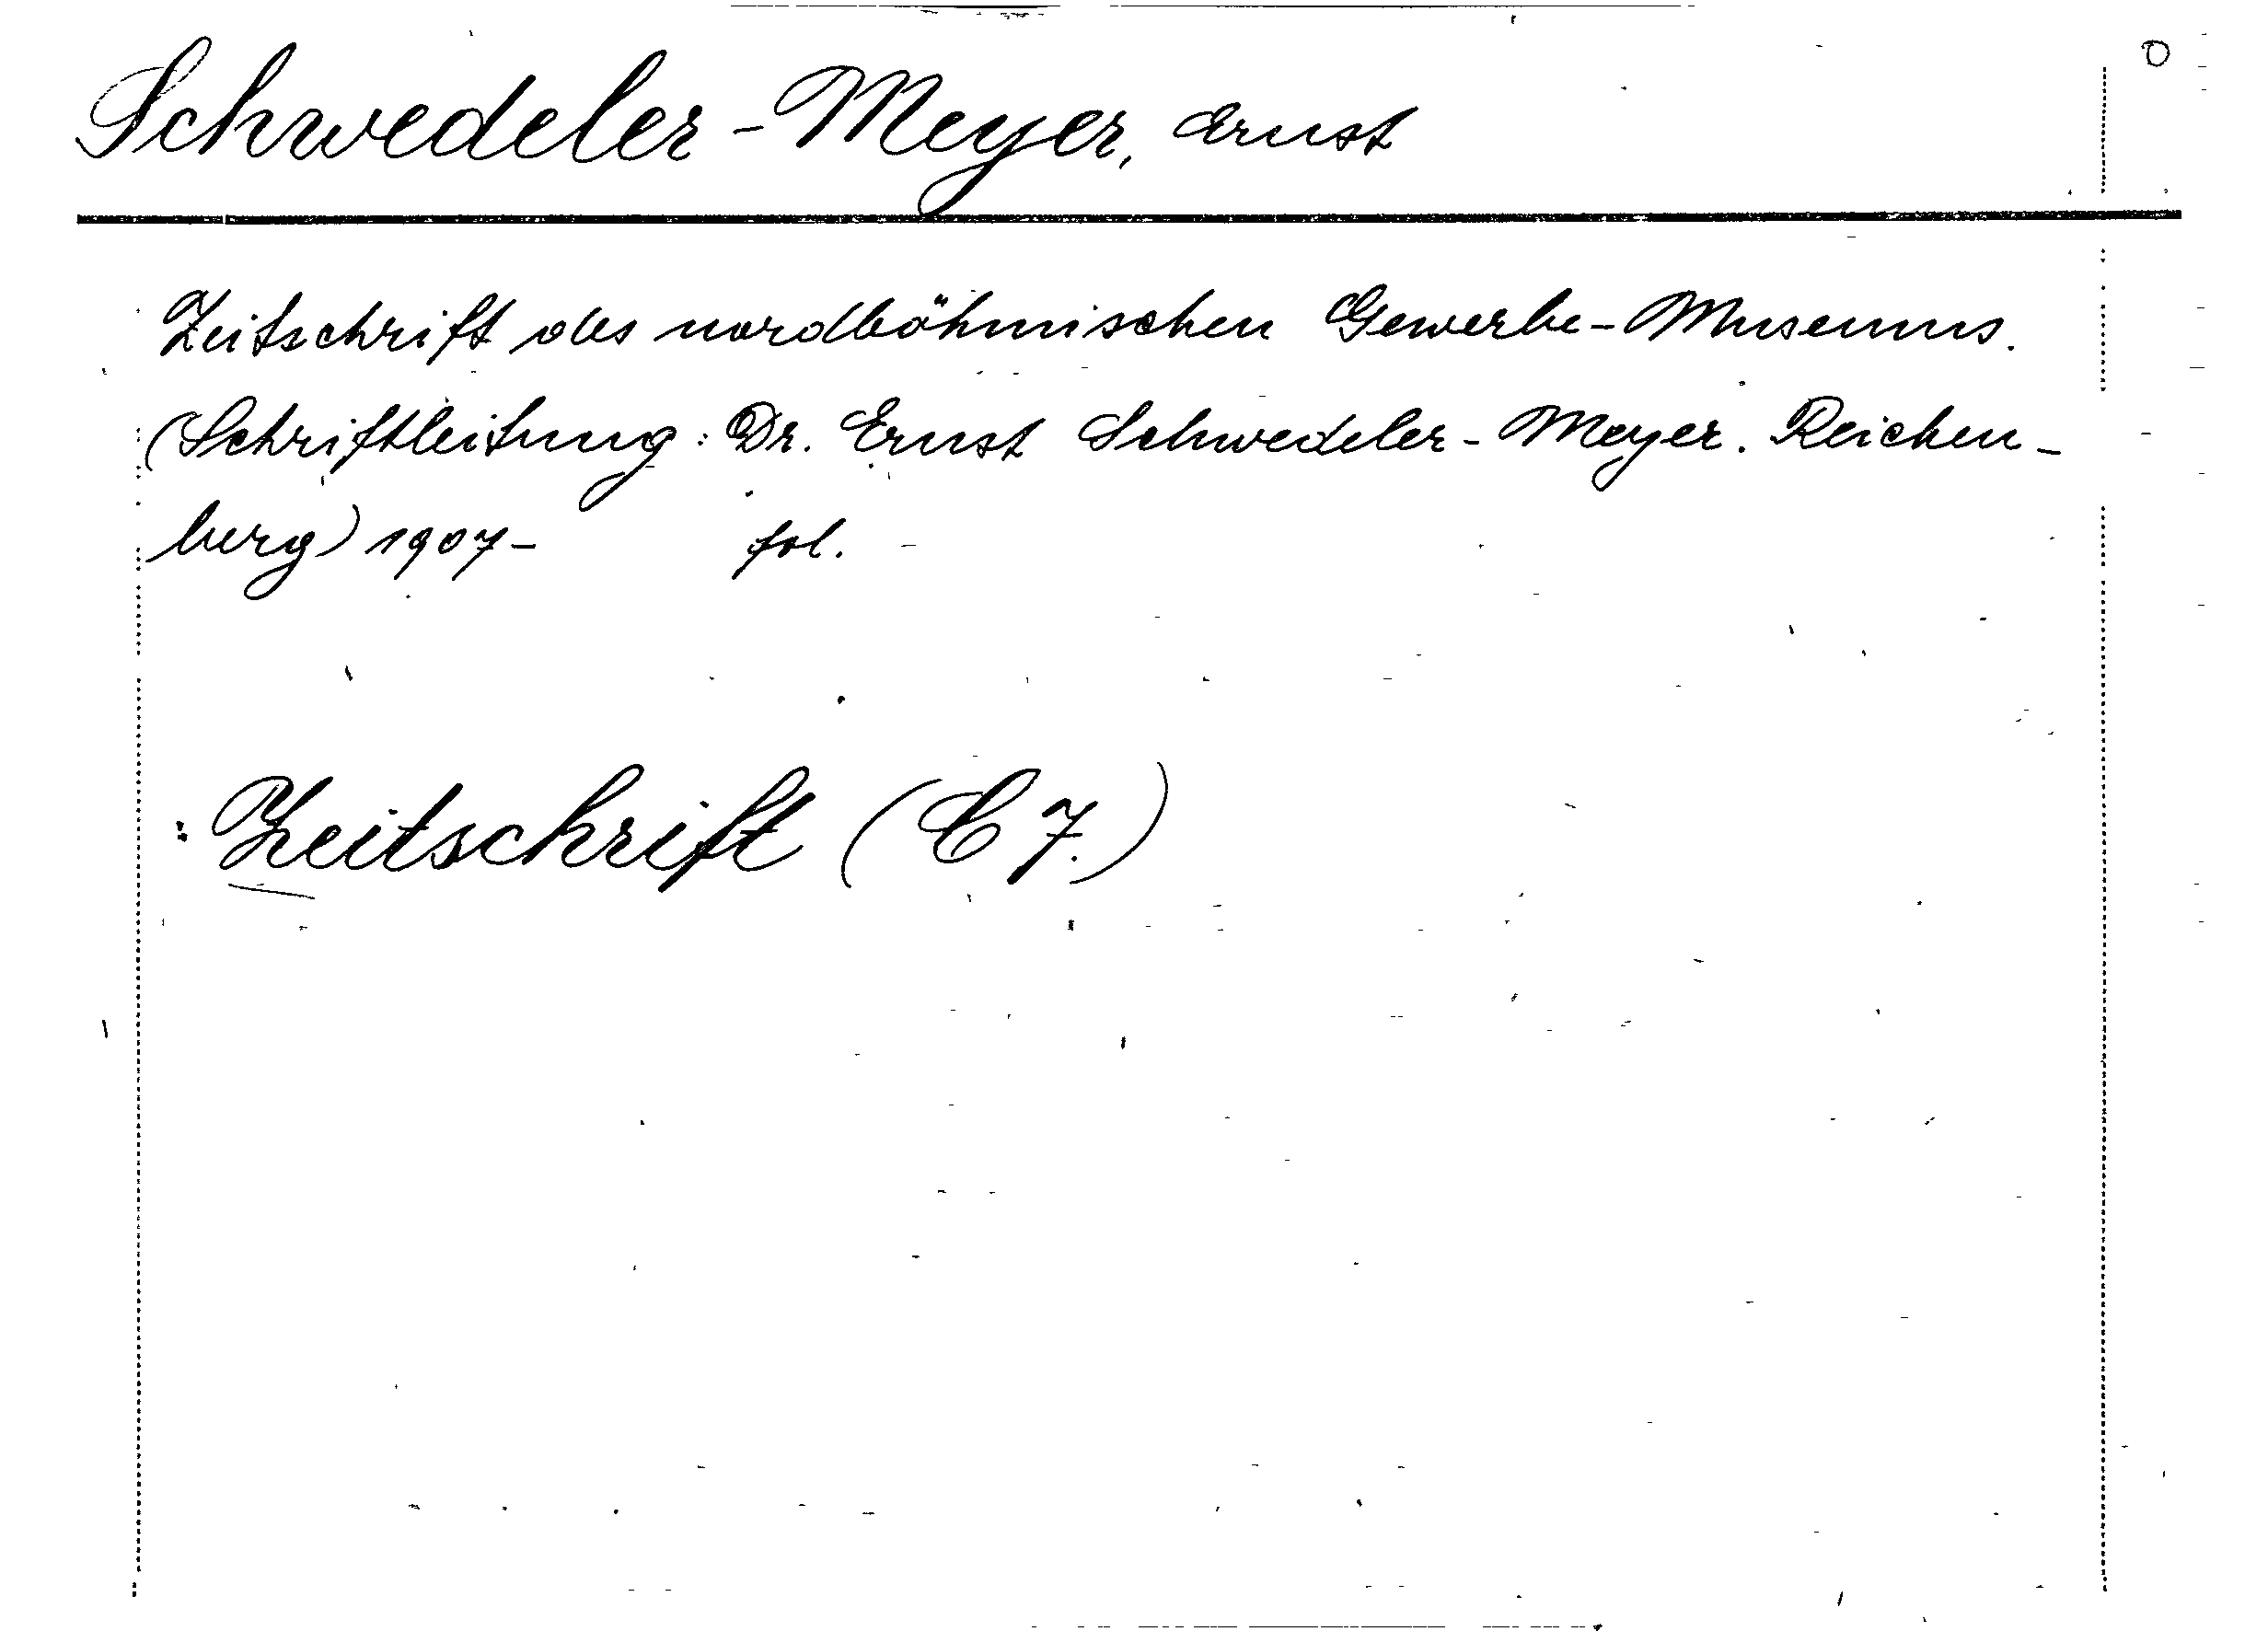 O
Schwedeler-Meyer, Ernst
Zeitschrift des nordböhmischen Gewerbe-Museums.
(Schriftleitung: Dr. Ernst Schwedeler-Meyer. Reichen-
berg) 1907- fol.
Zeitschrift (C 7.)